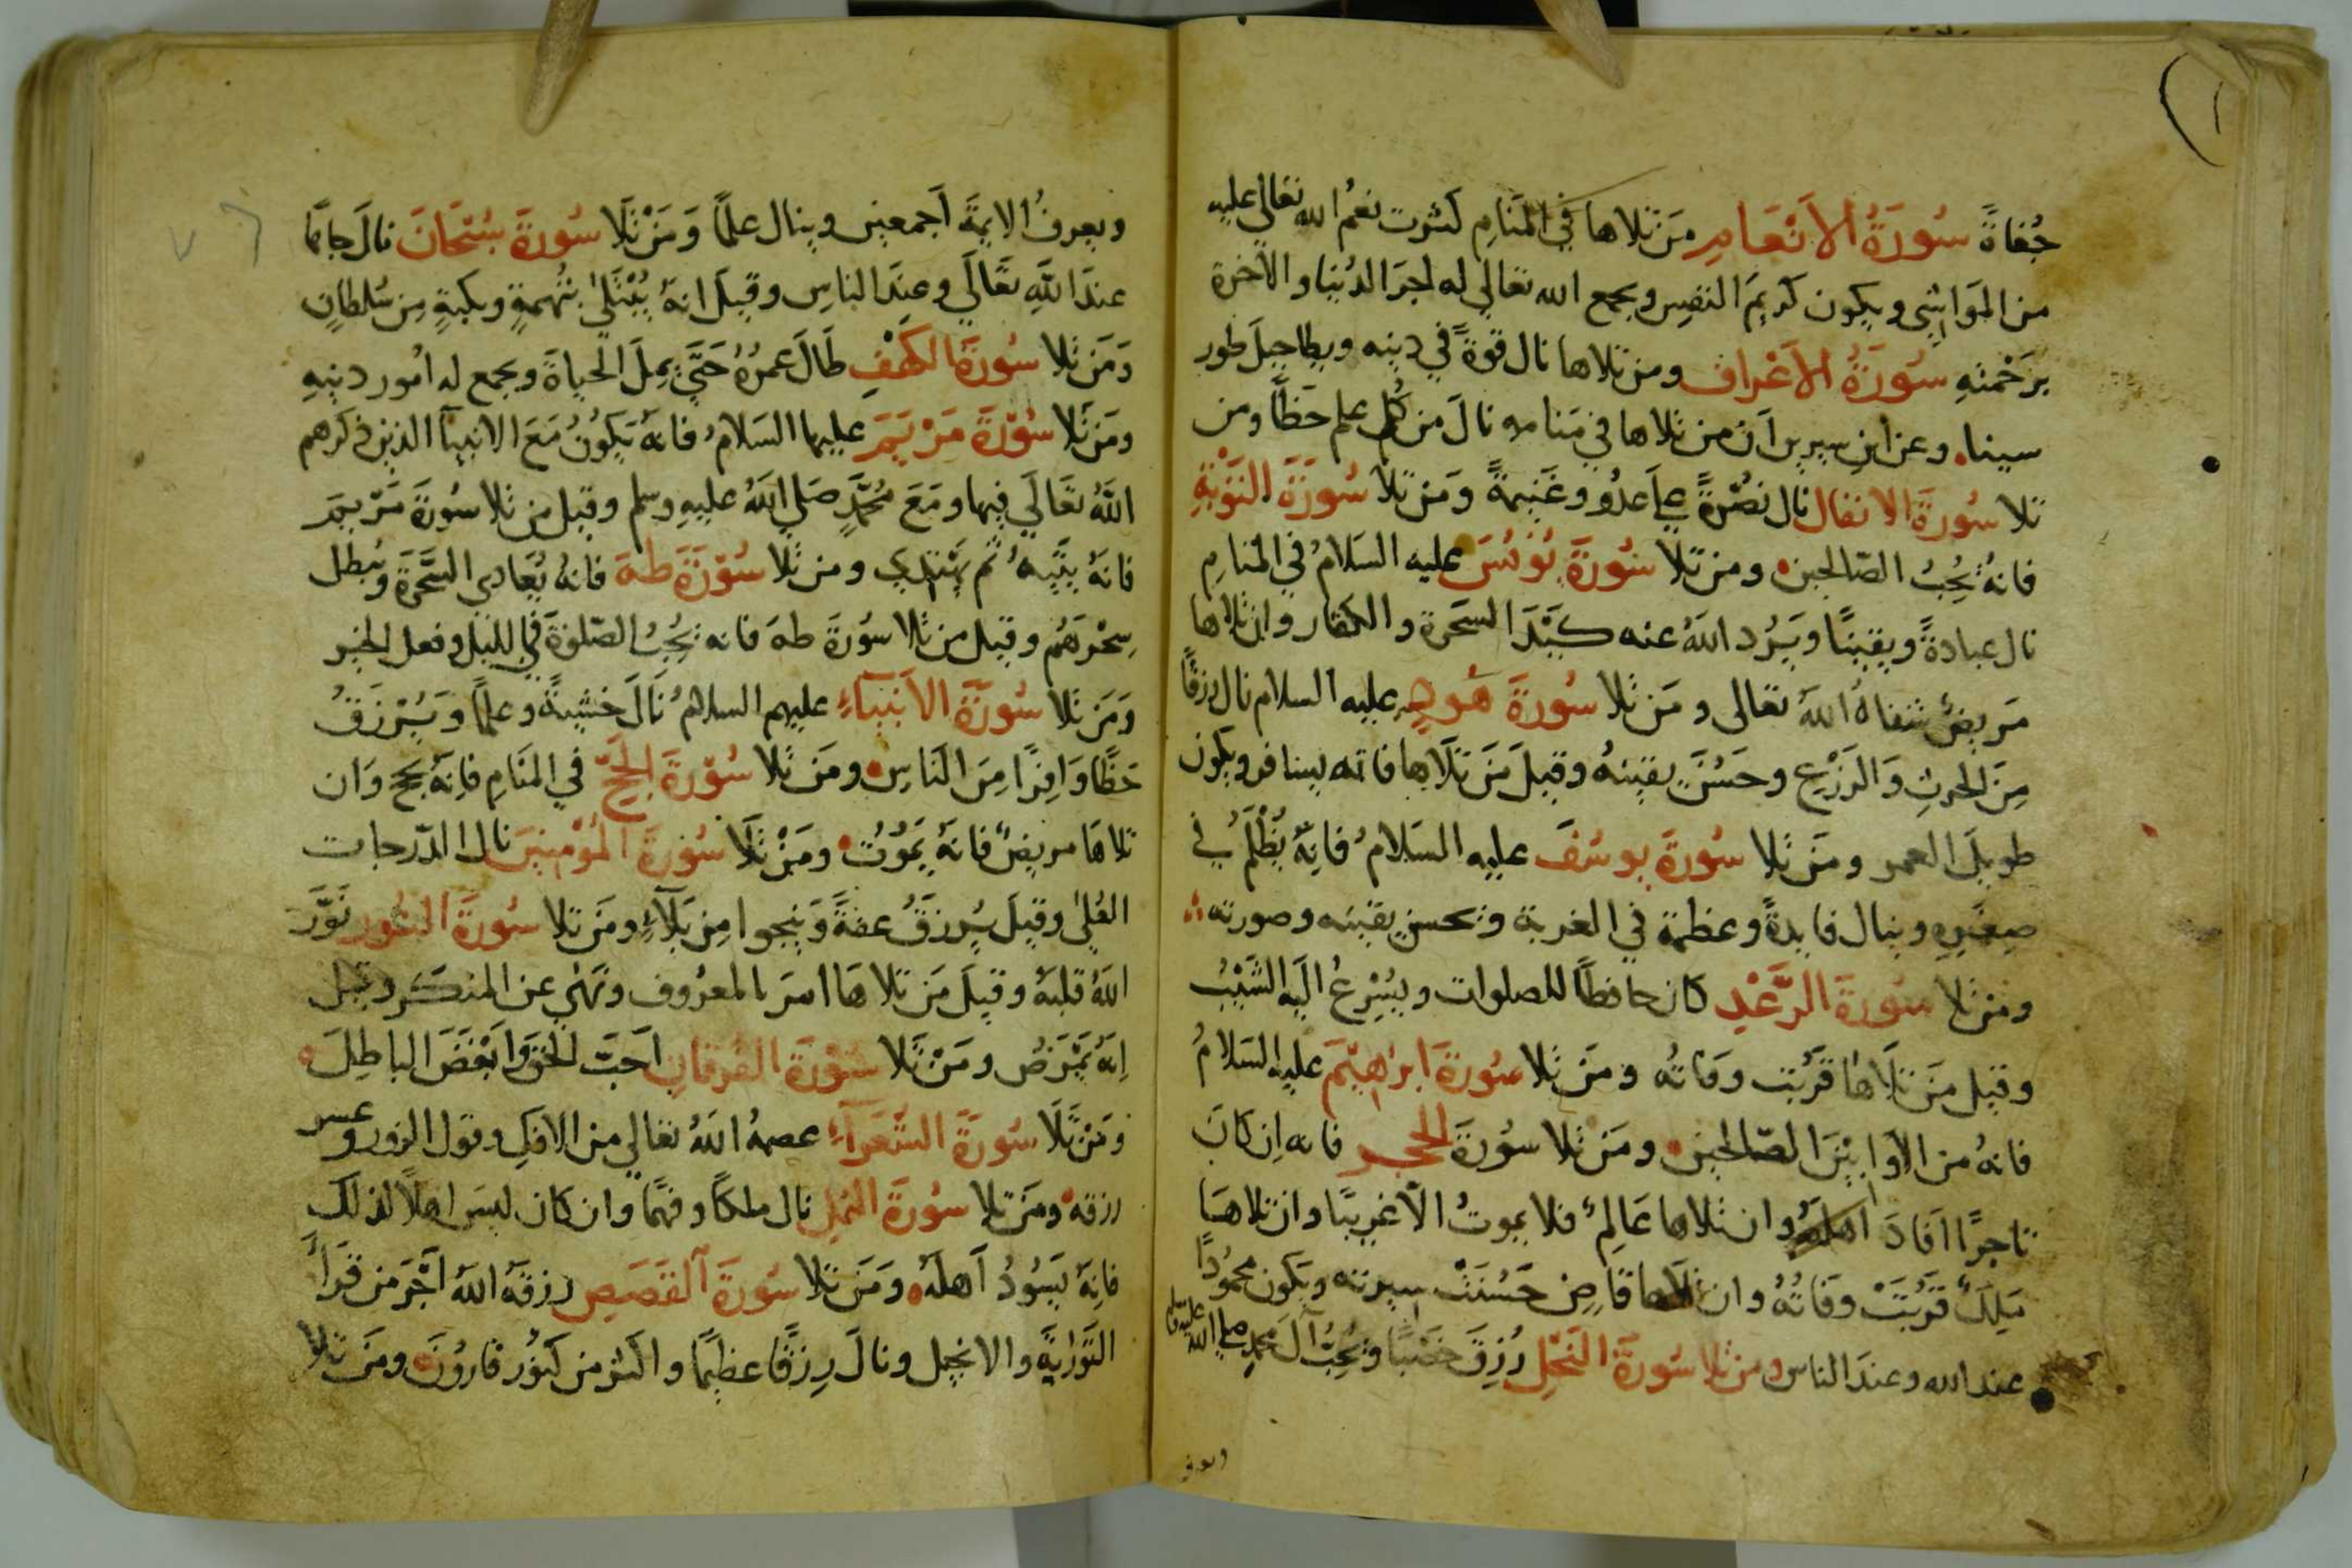 جُفاةً سُورَةُ الأَنْعَامِ مَن تلاها في المَنَامِ كثرت نعَمُ الله تعالى عليه
من المَوَاشى ويكون كريمَ النفسِ ويجمع الله تعالى له اجرَ الدُنيا والآخرة
برَحْمتهِ سُورَةُ الأَعْراف ومن تلاها نال قوةً في دينه ويطا جبلَ طور
سينا. وعن ابنِ سيرين اَن من تلاها في مَنامه نالَ من كُل علم حَظًّا ومن
تلا سُورَةَ الانفال نال نصُرةً على عدُو وغَنِيمةً وَمن تلا سُورَةَ التوْبَةِ
فانهُ يُحِبُ الصّالحين ومن تلا سُورَةَ يُونُسَ عليه السَلامُ في المنامِ
نال عبادةً ويقينًا ويَرُد اللهُ عنه كَيْدَ السَحَرة والكفار وان تلاها
مَريضٌ شفاهُ اللهُ تعالى ومَن تلا سُورةَ هُودٍ عليه السلام نال رزقًا
مِنَ الحرثِ وَالزَرْع وحَسُنَ يقينهُ وقيلَ مَن تَلاها فانه يسافر ويكون
طويلَ العمر ومَن تلا سُورةَ يوسُفَ عليه السَلامُ فانِهُ يُظْلَمُ في
صِغَرِهِ وينال فايدةً وعظمة في الغربة وتحسن يقينه وصورته
ومَن تلا سُورةَ الرَّعْدِ كان حافظًا للصلوات ويُسْرِعُ اليه الشَيْبُ
وقيل مَن تَلاها قَرُبت وفاتُه ومَن تلا سُورَةَ ابراهِيْمَ عليه السَلامُ
فانهُ من الاوّابيْنَ الصّالحين ومَن تلا سُورةَ الحجر فانه اِن كانَ
تاجرًا اَفادَ اهلَهُ وان تلاها عَالِمٌ فلا يموتُ الّا غريبًا وان تلاها
مَلِكٌ قَرُبَتْ وَفَاتُهُ وان تلاها قاضٍ حَسُنَتْ سيرته ويكون محمُودًا
عند الله وعندَ الناس ومن تلا سُورةَ النَحْلِ رُزِقَ خصْبًا ويُحِبُّ آلَ محمدٍ صلى الله عليه
ويعرف
ويعرفُ الايمةَ اَجمعينَ وينال علمًا وَمَنْ تَلَا سُورةَ سُبْحَانَ نالَ جاهًا
عندَ اللهِ تعَالَي وعِندَ الناسِ وقيلَ انهُ يُبْتَلَىٰ بتُهمةٍ ونكبةٍ مِن سُلطانٍ
وَمَن تلا سُورَةَ الكَهْفِ طَالَ عمرُهُ حَتَّى يمِلَ الحياةَ ويجمع له اُمور دينهِ
ومَن تَلا سُوْرةَ مَرْيَمَ عليها السَلامُ فانهُ يَكوُنُ مَعَ الانبيآ الذين ذكرهم
اللهُ تعَالَي فيها ومَعَ مُحمَّدٍ صَلى اللهُ عليهِ وسلم وقيل من تلا سُورةَ مَرْيمَ
فانهُ يتيهُ ثم يَهتدي ومن تلا سُوْرَةَ طهَ فانهُ يُعادى السَّحَرَةَ ويُبطل
سِحْرَهُم وقيل من تلا سُورَةَ طهَ فانه يُحِبُ الصّلوةَ في الليل وفعل الخير
وَمَن تلا سُورَةَ الأَنبياءِ عليهم السلامُ نَالَ خشيةً وعلمًا وَيُرْزَقُ
حَظًّا وَافِرًا مِنَ النَاسِ ومَن تلا سُوْرَةَ الحَجّ في المنَامِ فانِهُ يحج وَان
تلاهَا مريضٌ فانهُ يَمُوْتُ ومَنْ تَلَا سُورةَ المُؤْمنِينَ نال الدّرجات
العُلىٰ وقيلَ يُرزَقُ عفةً وَينجوا مِن بَلآءٍ ومَن تلا سُورةَ النُور نَوَّرَ
اللهُ قلبهُ وقيلَ مَن تلاهَا امرَ بالمعرُوف ونَهىٰ عن المنكَر وقيل
اِنهُ يَمْرَضُ ومَنْ تَلا سُوْرَةَ الفُرقانِ اَحَبَّ الحَقَ وَابْغَضَ الباطِلَ
ومَنْ تَلَا سُورَةَ الشُّعَرآءِ عصمهُ اللهُ تعَالي من الافكِ وقول الزور وعسر
رزقه ومَن تلا سُورَةَ النملِ نال ملكًا وفهمًا وان كان ليسَ اهلًا لذلكَ
فانِهُ يَسُودُ اَهلَهُ وَمَن تلا سُورَةَ القَصَصِ رزقهُ اللهُ اَجْرَ مَن قَرأَ
التَّوْرَايةَ والانجيل ونالَ رِزقًا عظيمًا واكثر من كنُوز قارُونَ ومَن تلا